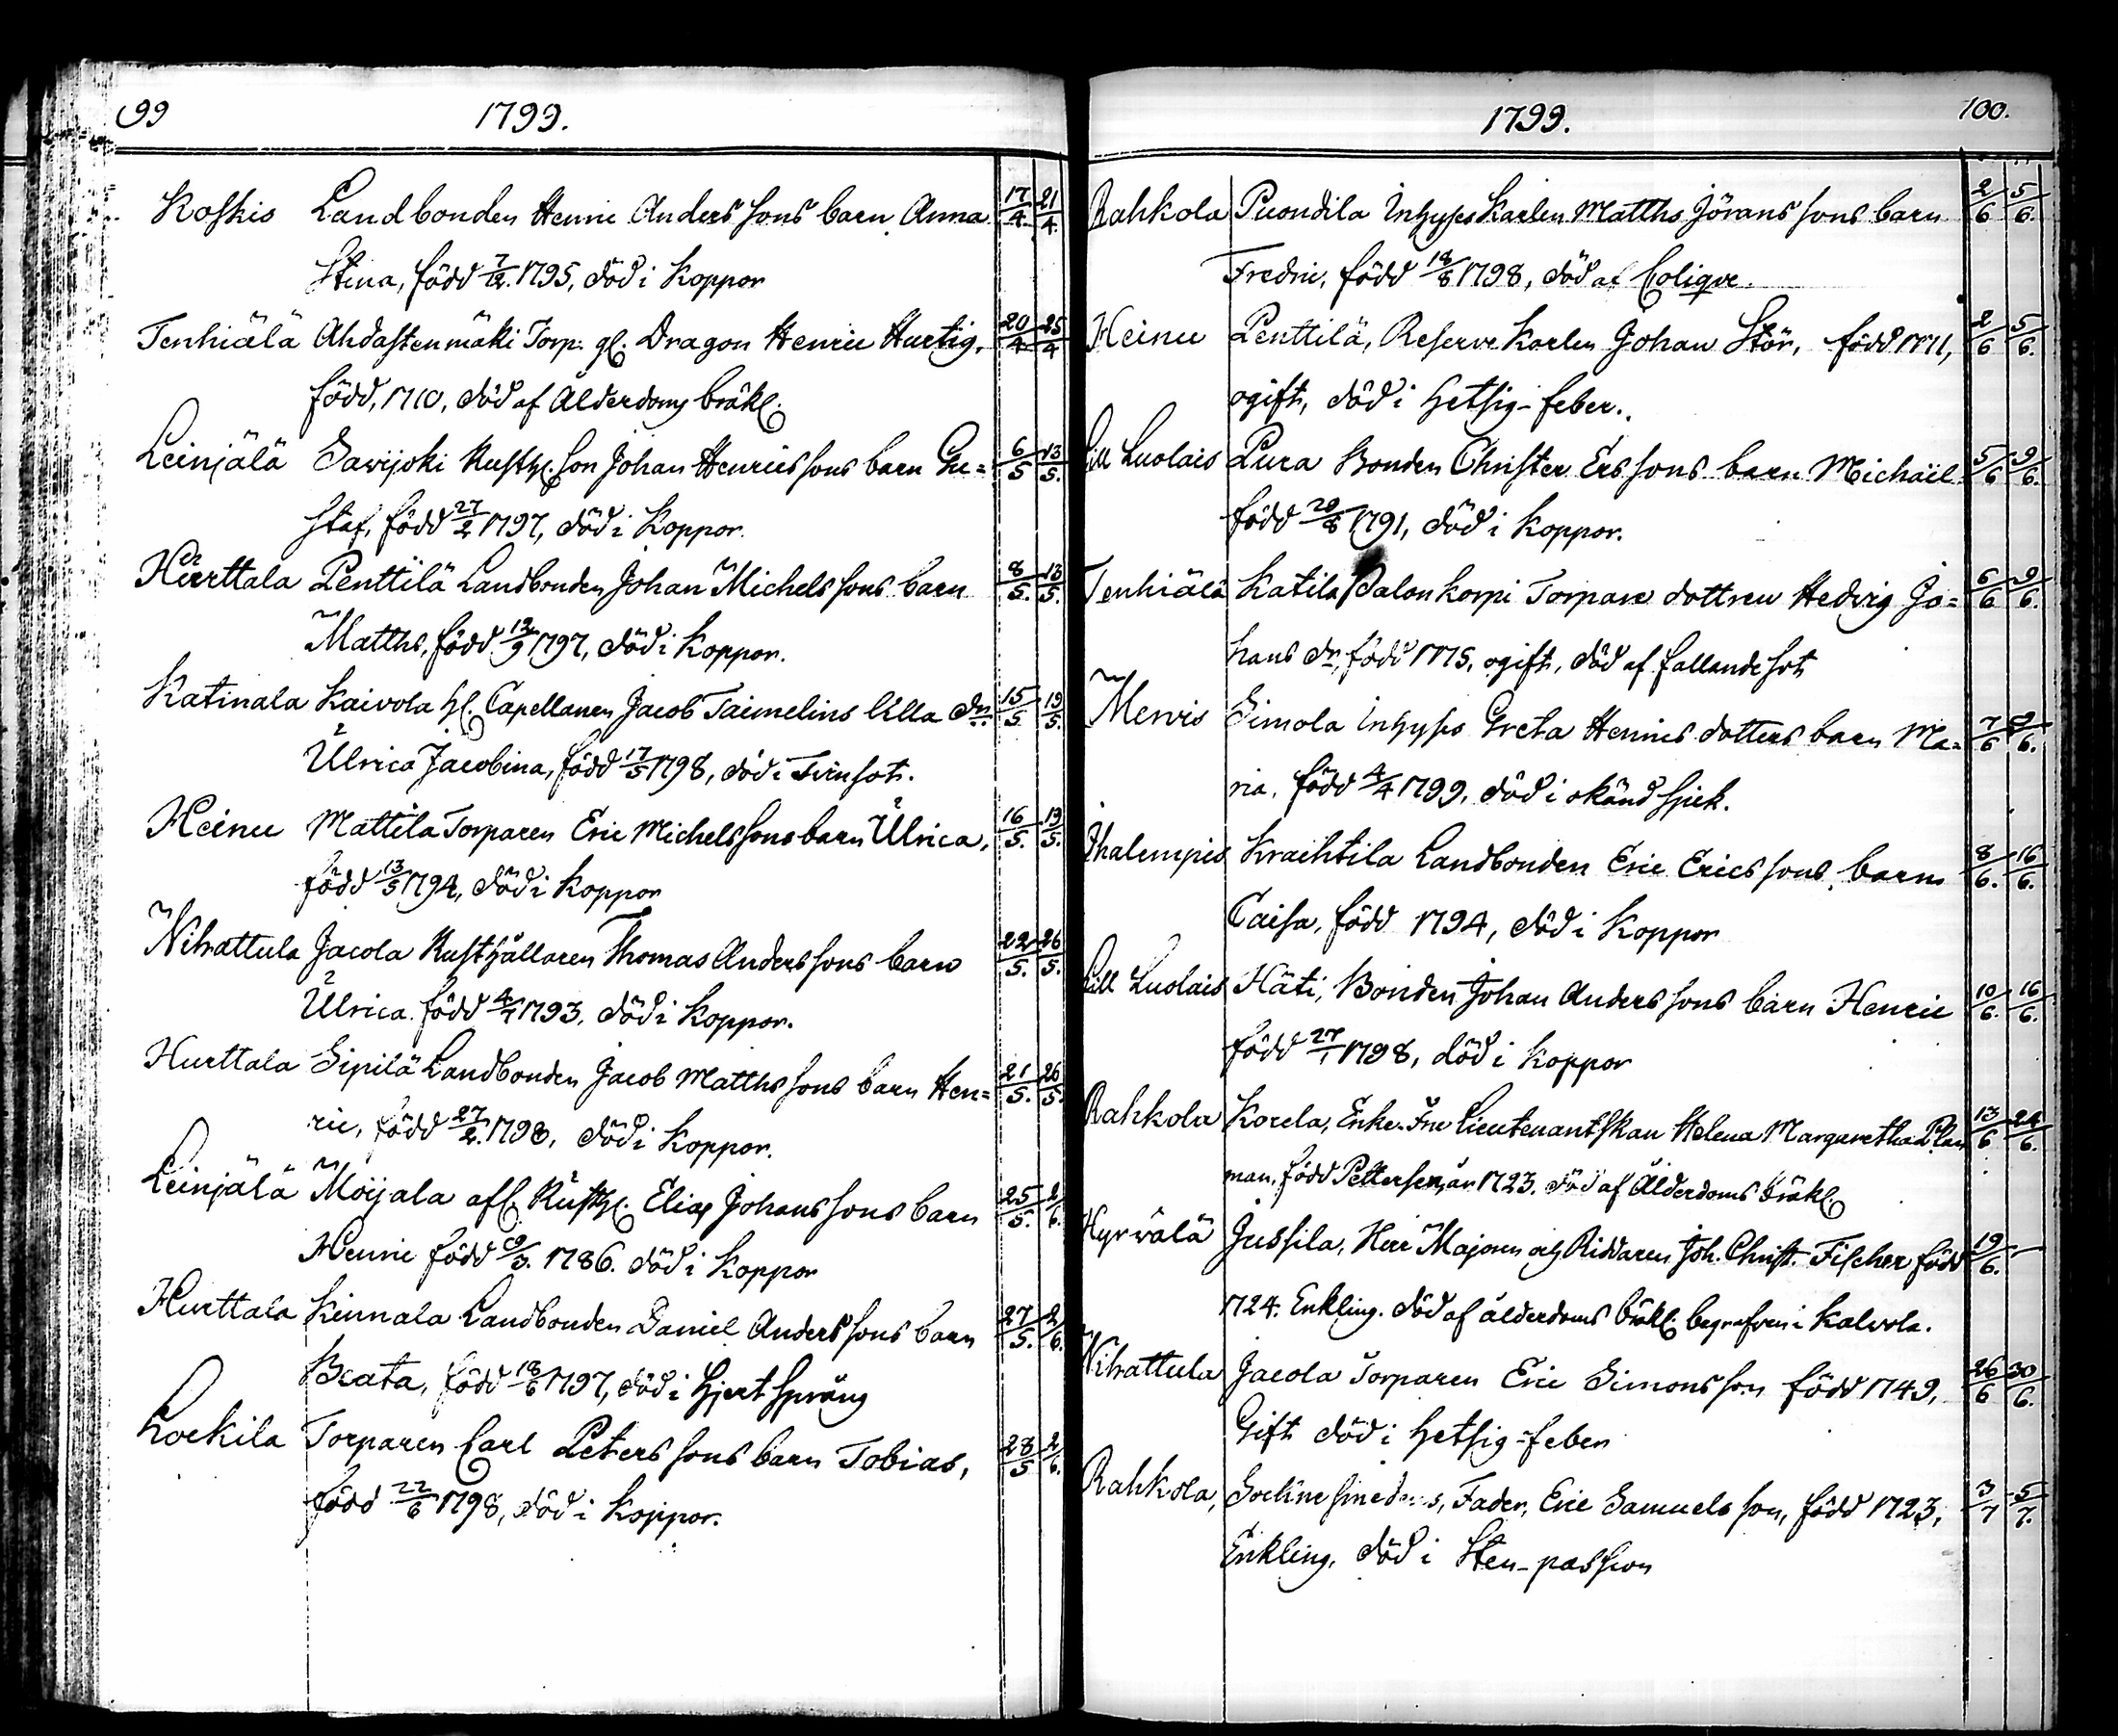 99 1799.
Koskis Landbonden Henric Anders sons barn Anna 17/4. 21/4
Stina, född 7/12. 1795, död i Koppor
Tenhiälä Ahdastenmäki Torp. gl. Dragon Henric Hurtig, 20/4 25/4
född, 1710, död af Ålderdoms bräkl.
Leinjälä Sawijoki Rusth. Son Johan Henrics sons barn Gu= 6/5 13/5.
staf, född 27/2 1797, död i Koppor.
Hurttala Penttilä Landbonden Johan Michels sons barn 8/5. 13/5.
Matths, född 12/9 1797, död i Koppor.
Katinala Kaivola hl. Capellanen Jacob Taimelins lilla dr. 15/5 19/5.
Ulrica Jacobina, född 17/5 1798, död i Tvinsot.
Heinu Mattila Torparen Eric Michels sons barn Ulrica, 16/5. 19/5.
född 13/5 1794, död i Koppor
Nihattula Jacola Rusthållaren Thomas Anders sons barn 22/5. 26/5.
Ulrica född 4/7 1793, död i Koppor.
Hurttala Sipilä Landbonden Jacob Matths sons barn Hen= 21/5. 26/5.
ric, född 27/2. 1798, död i Koppor.
Leinjälä Moijala afl. Rusth. Elias Johans sons barn 25/5. 2/6.
Henric född 9/3. 1786. död i Koppor
Hurttala Kinnala Landbonden Daniel Anders sons barn 27/5. 2/6.
Beata, född 18/6 1797, död i hjertsprång
Lockila Torparen Carl Peters sons barn Tobias, 28/5 2/6.
född 22/6 1798, död i Koppor.
1799. 100.
Rahkola Puondila Inhyses Karlen Matths Jörans sons barn 2/6 5/6.
Fredric, född 18/8 1798, död af Colique.
Heinu Penttilä, Reserve Karlen Johan Stör, född 1771, 2/6 5/6.
ogift, död i hetsig-feber.
Lill Luolais Pura Bonden Christer Ers sons barn Michäel 5/6 9/6.
född 20/8 1791, död i Koppor.
Tenhiälä Katila Salonkorpi Torpare dottren Hedvig Jo= 6/6 9/6.
hans dr, född 1775, ogift, död af fallandesot
Mervis Simola Inhyses Greta Henrics dotters barn Ma= 7/6 9/6.
ria, född 4/4 1799, död i okänd sjuk.
Ihalempis Kraihtila Landbonden Eric Erics sons barn 8/6. 16/6.
Caisa, född 1794, död i Koppor
Lill Luolais Häti, Bonden Johan Anders sons barn Henric 10/6. 16/6.
född 27/1 1798, död i Koppor
Rahkola Korela, Enke-Fru Lieutenantskan Helena Margaretha Plan 13/6 24/6.
man, född Pettersen, år 1723. död af Ålderdoms bräkl.
Hyrvälä Jussila, Herr Majoren och Riddaren Joh. Christ. Fischer född 19/6. —
1724. Enkling. död af ålderdoms bräkl. begrafven i Kalvola.
Nihattula Jacola Torparen Eric Simons son född 1749, 26/6 30/6.
Gift död i hetsig-feber
Rahkola, Fader, Eric Samuels son, född 1723, 3/7 5/7.
Enkling, död i Sten-passion